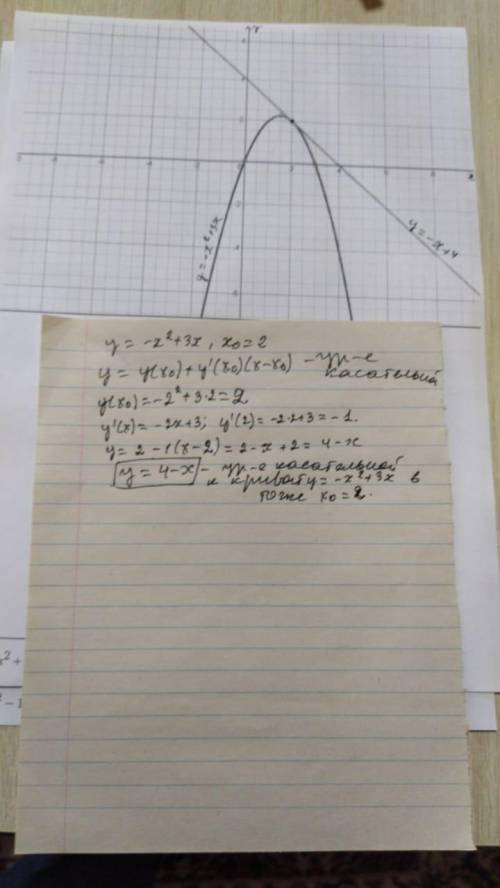 y
x
y = -x²+3x
y = -x+4
y = -x²+3x, x₀=2
y = y(x₀)+y'(x₀)(x-x₀) - ур-е
касательной
y(x₀)=-2²+3·2=2
y'(x)=-2x+3; y'(2)=-2·2+3=-1.
y=2-1(x-2)=2-x+2=4-x
y=4-x - ур-е касательной
к кривой y=-x²+3x в
точке x₀=2.